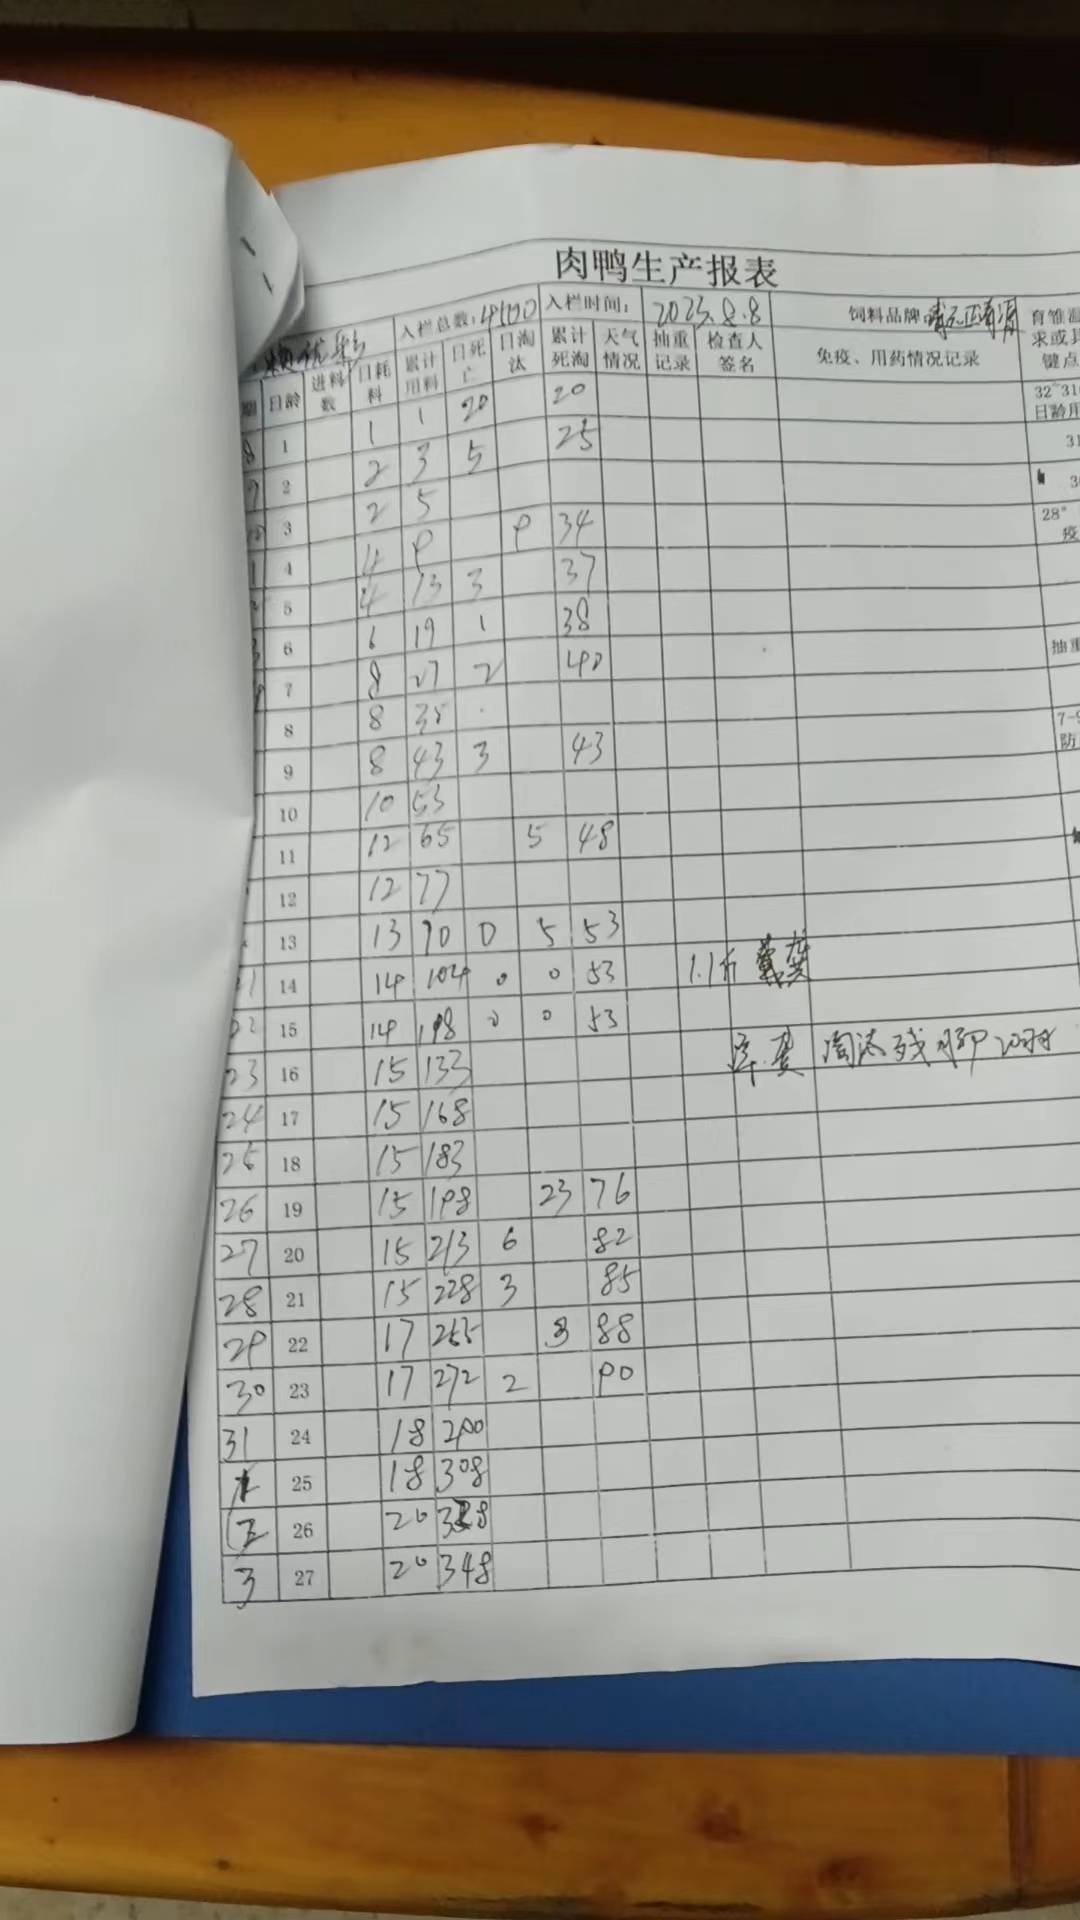 肉鸭生产报表
入栏总数: 入栏时间: 2023.8.8 饲料品牌: 育雏温
日龄 进料数 日耗料 累计用料 日死亡 日淘汰 累计死淘 天气情况 抽重记录 检查人签名 免疫、用药情况记录 求或其 键点
8 1 1 1 20 20 32~31 日龄用
2 2 3 5 25 31
3 2 5 30
4 4 9 9 34 28° 疫
5 4 13 3 37
6 6 19 1 38
7 8 27 2 40 抽重
8 8 35
9 8 43 3 43 7-9 防
10 10 53
11 12 65 5 48
12 12 77
13 13 90 0 5 53
14 14 104 0 0 53 1.1斤
15 14 118 0 0 53
23 16 15 133 淘汰残鸭20羽
24 17 15 168
25 18 15 183
26 19 15 198 23 76
27 20 15 213 6 82
28 21 15 228 3 85
29 22 17 255 3 88
30 23 17 272 2 90
31 24 18 290
25 18 308
26 20 328
3 27 20 348